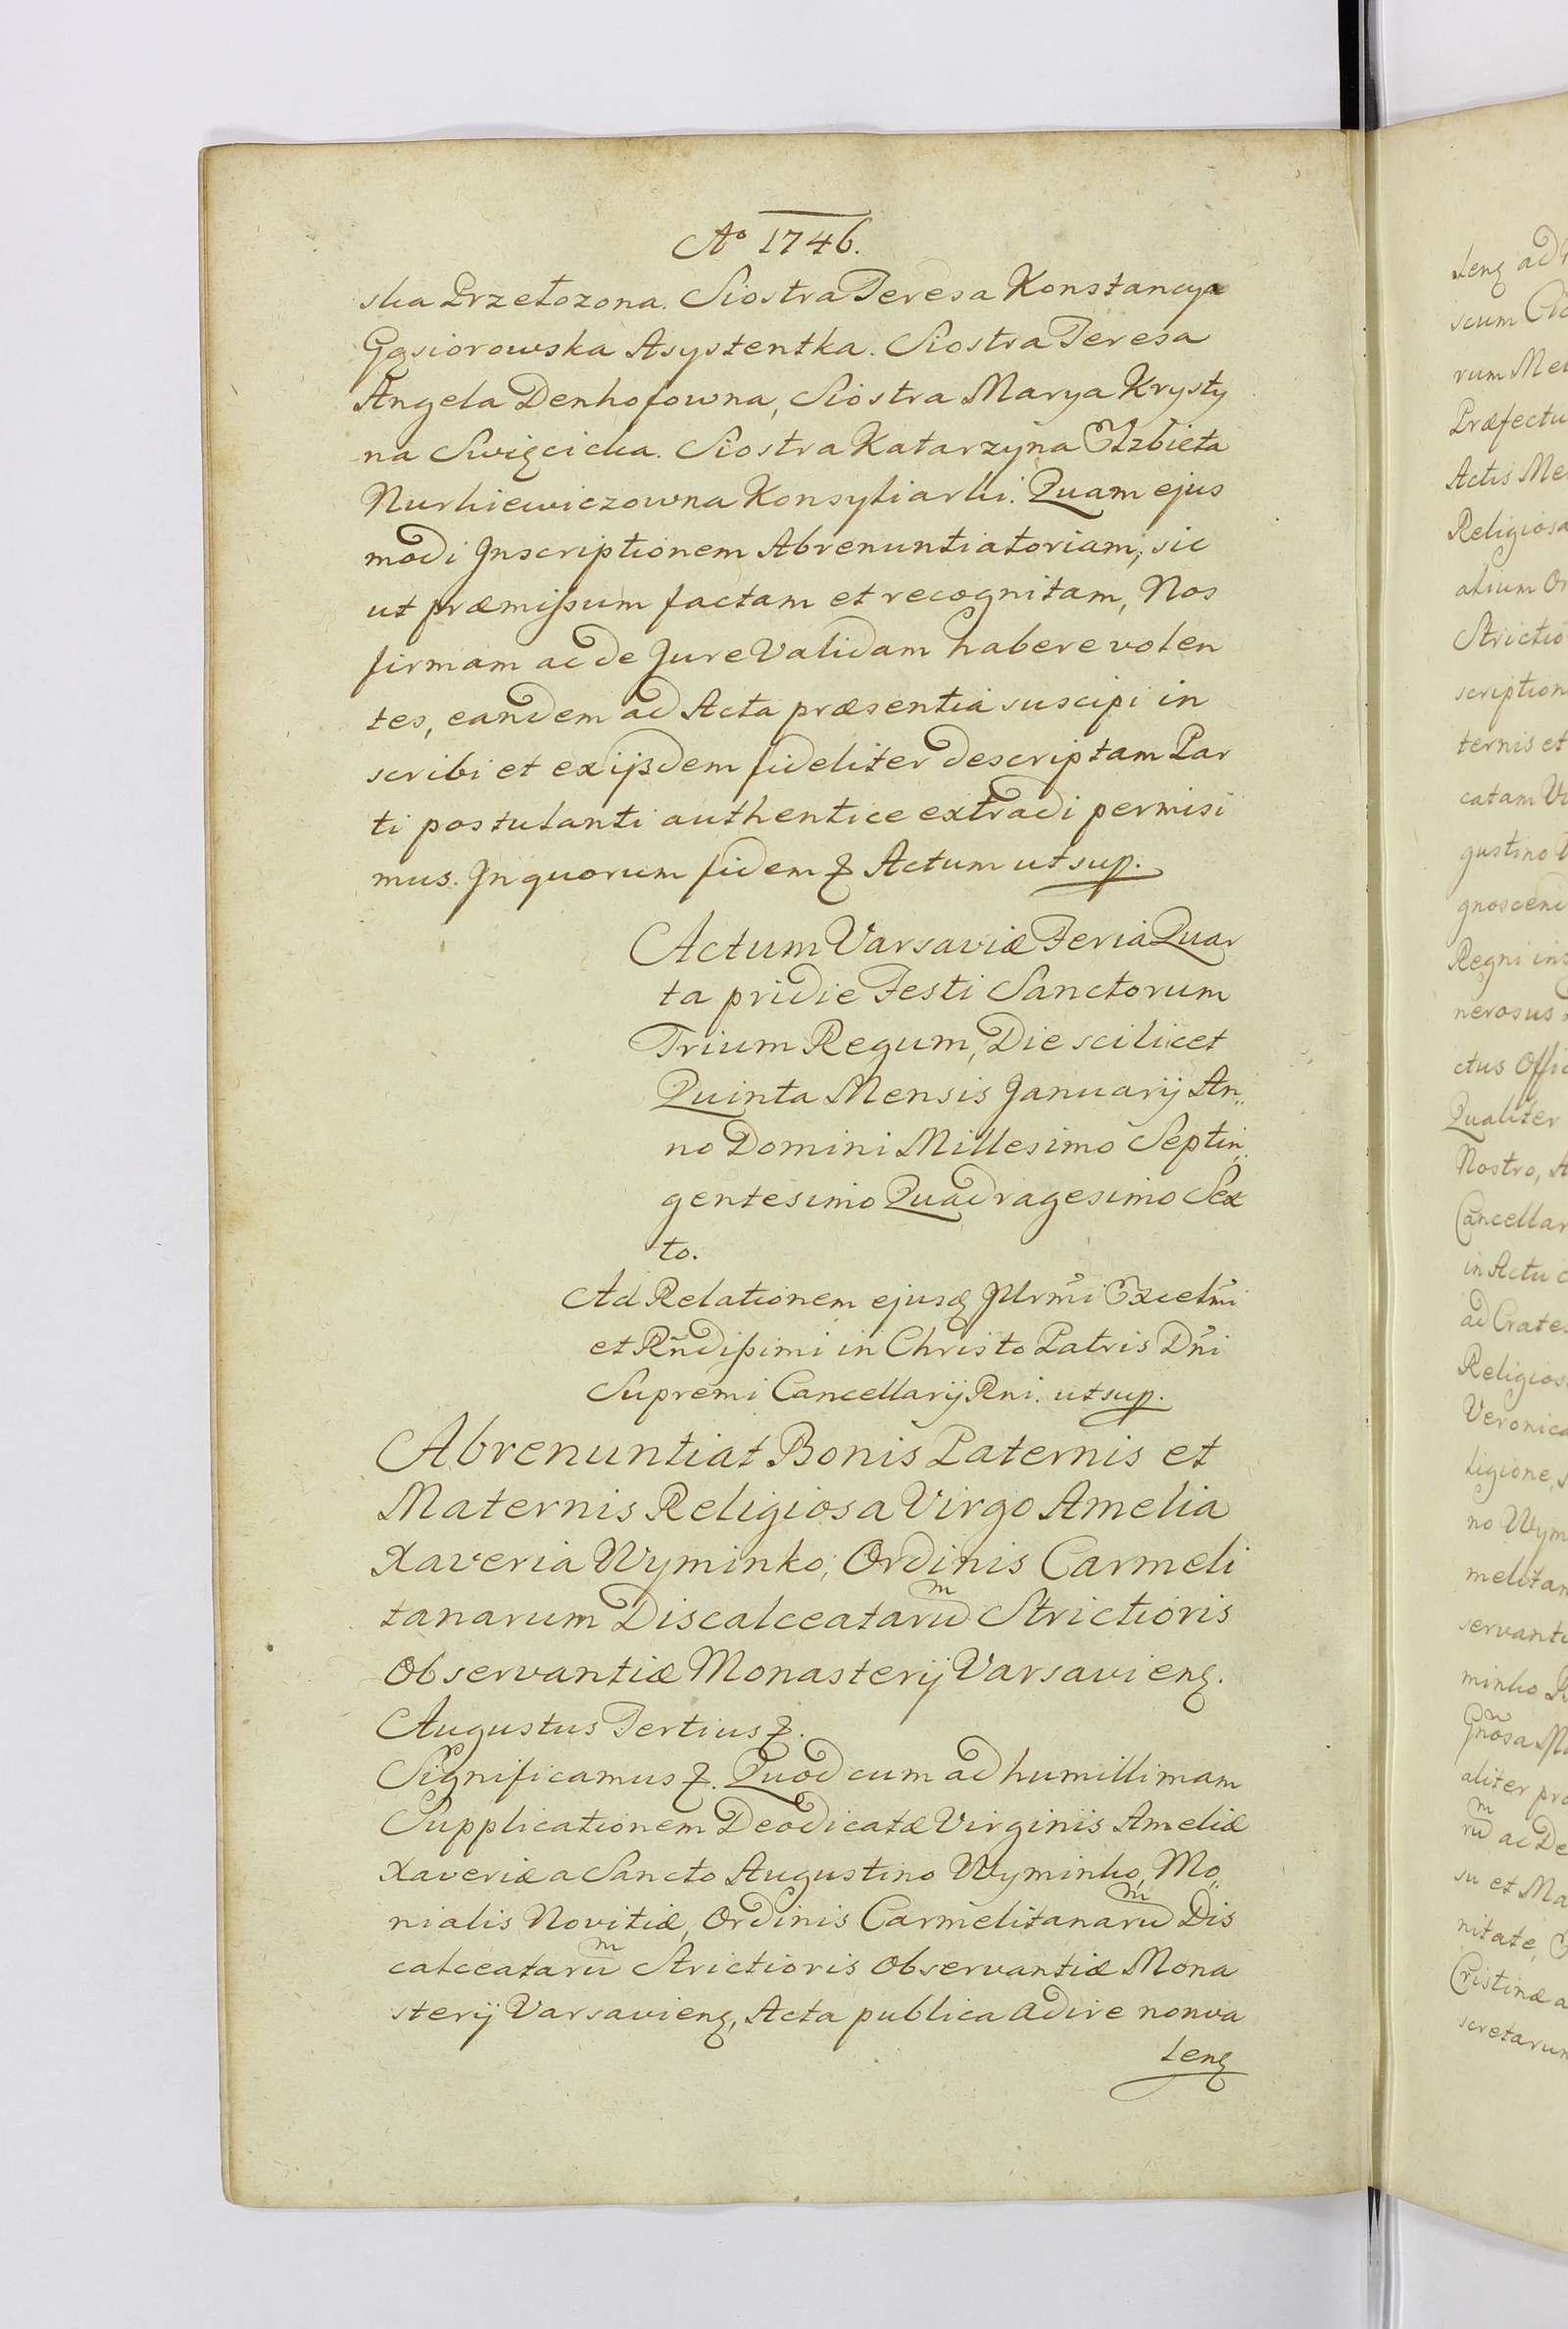 Aº 1746.
ska Przełozona. Siostra Teresa Konstancya
Gąsiorowska Asystentka. Siostra Teresa
Angela Denhofowna, Siostra Marya Krysty
na Swięcicka. Siostra Katarzyna Elzbieta
Nurkiewiczowna Konsyliarki. Quam ejus
modi Inscriptionem Abrenuntiatoriam, sic
ut præmißum factam et recognitam, Nos
firmam ac de Jure Validam habere volen
tes, eandem ad Acta præsentia suscipi in
scribi et ex ijsdem fideliter descriptam Par
ti postulanti authentice extradi permisi
mus. In quorum fidem & Actum ut sup.
Actum Varsaviæ Feria Quar
ta pridie Festi Sanctorum
Trium Regum, Die scilicet
Quinta Mensis Januarij An„
no Domini Millesimo Septin„
gentesimo Quadragesimo Sex
to.
Ad Relationem ejusq Illrm̃i Excelm̃i
et Rñdißimi in Christo Patris Dñi
Supremi Cancellarij Rni. ut sup.
Abrenuntiat Bonis Paternis et
Maternis Religiosa Virgo Amelia
Xaveria Wyminko, Ordinis Carmeli
tanarum Discalceataruͫ Strictioris
Observantiæ Monasterij Varsavienȝ.
Augustus Tertius &.
Significamus &. Quod cum ad humillimam
Supplicationem Deodicatæ Virginis Ameliæ
Xaveriæ a Sancto Augustino Wyminko, Mo„
nialis Novitiæ, Ordinis Carmelitanaruͫ Dis
calceataruͫ Strictioris Observantiæ Mona
sterij Varsavienȝ, Acta publica adire non va
lenȝ
lenȝ ad
scum
rum
Præfectu
Actis
Religiosa
alium
Strictio
scription
ternis et
catam
gustino
gnoscend
Regni
nerosus
ctus
Qualiter
Nostro,
Cancellar
in Actu
ad Crates
Religios
Veronica
ligione,
no Wym
melitan
servanti
minko
Gñosa
aliter
ruͫ ac De
su et Ma
nitate,
Cristinæ a
scretarum